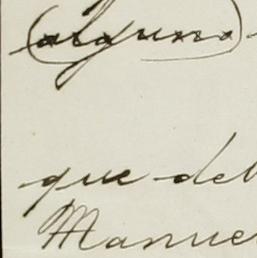 (alguno)
que deb
Manue